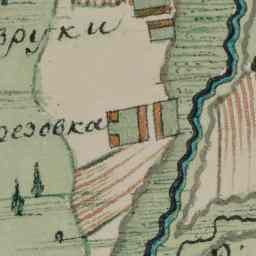 вруки
резовка